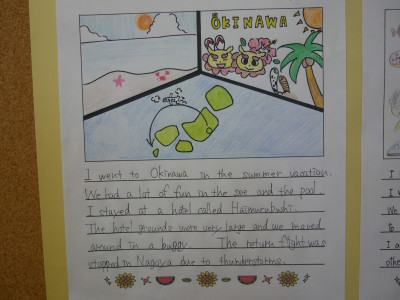 OKINAWA
I went to Okinawa in the summer vacation.
We had a lot of fun in the see and the pool.
I stayed at a hotel called Haimurubushi.
The hotel grounds were very large and we moved
around in a buggy. The return flight was
stopped in Nagoya due to thunderstorms.